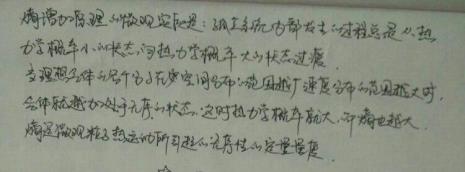 熵增加原理的微观实质是：孤立系统内部发生的过程总是从热
力学概率小的状态向热力学概率大的状态过渡.
当理想气体的各个分子在空间分布的范围越广速度分布的范围越大时,
气体就越加处于无序的状态,这时热力学概率就大,即熵也越大.
熵是微观粒子热运动所引起的无序性的定量量度.